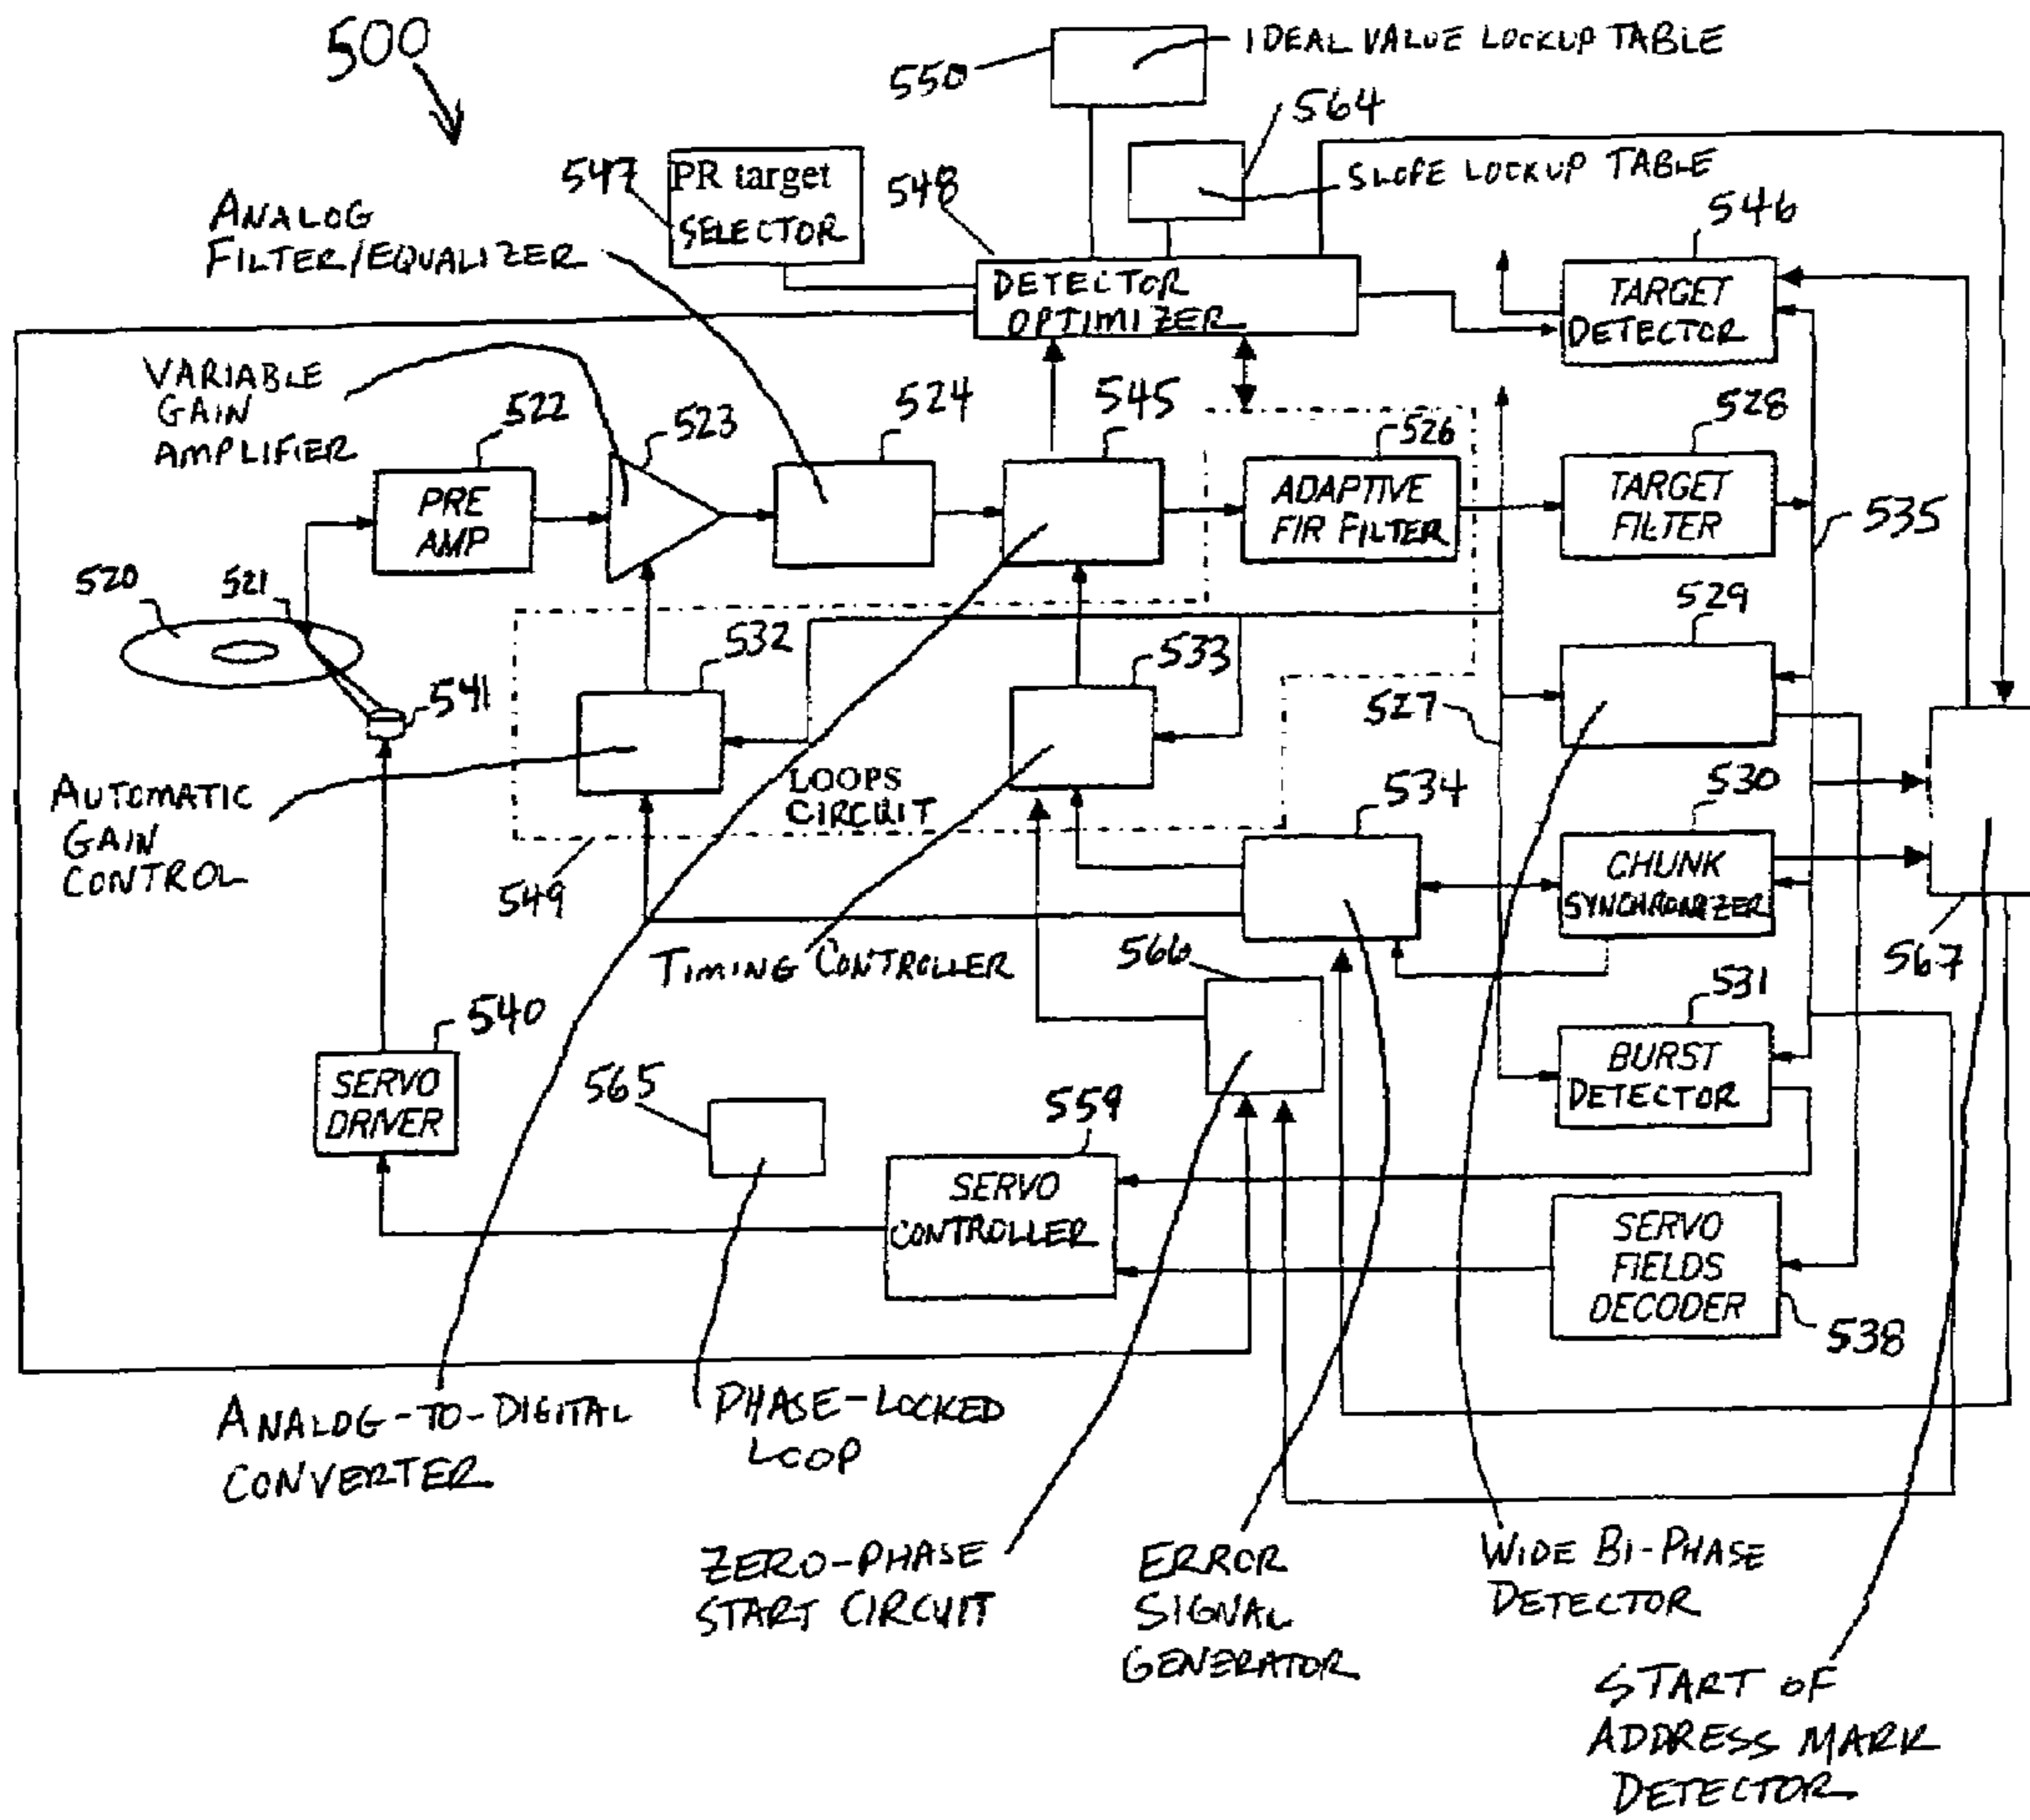 500
550
IDEAL VALUE LOOKUP TABLE
564
SLOPE LOOKUP TABLE
547
PR target
SELECTOR
548
DETECTOR
OPTIMIZER
546
TARGET
DETECTOR
ANALOG
FILTER/EQUALIZER
VARIABLE
GAIN
AMPLIFIER
522
PRE
AMP
523
524
545
526
ADAPTIVE
FIR FILTER
528
TARGET
FILTER
535
520
521
541
532
533
529
527
AUTOMATIC
GAIN
CONTROL
LOOPS
CIRCUIT
549
534
530
CHUNK
SYNCHRONIZER
567
TIMING CONTROLLER
566
531
BURST
DETECTOR
540
SERVO
DRIVER
565
559
SERVO
CONTROLLER
SERVO
FIELDS
DECODER
538
ANALOG-TO-DIGITAL
CONVERTER
PHASE-LOCKED
LOOP
ZERO-PHASE
START CIRCUIT
ERROR
SIGNAL
GENERATOR
WIDE BI-PHASE
DETECTOR
START OF
ADDRESS MARK
DETECTOR